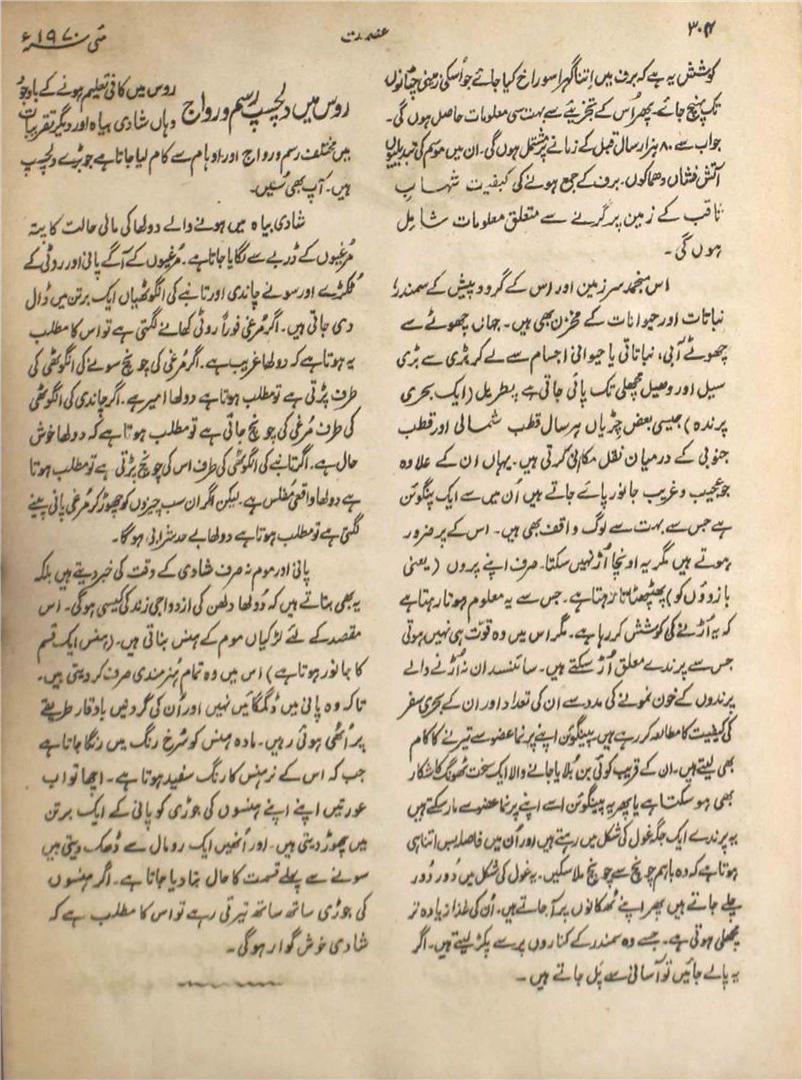 ۳۰۴
عصمت
مئی ۱۹۷۰ء
کوشش یہ ہے کہ برف میں اتنا گہرا سوراخ کیا جائے جو اسکی زمینی چٹانوں
تک پہنچ جائے۔ پھر اُس کے تجزیئے سے بہت سی معلومات حاصل ہوں گی۔
جو اب سے ۸۰ ہزار سال قبل کے زمانے پر مشتمل ہوں گی۔ ان میں موسم کی تبدیلیوں
آتش فشاں دھماکوں۔ برف کے جمع ہونے کی کیفیت شہابِ
ثاقب کے زمین پر گرنے سے متعلق معلومات شامل
ہوں گی۔
اس منجمد سرزمین اور اس کے گرد و پیش کے سمندر
نباتات اور حیوانات کے مخزن بھی ہیں۔ جہاں چھوٹے سے
چھوٹے آبی، نباتاتی یا حیوانی اجسام سے لے کر بڑی سے بڑی
سیل اور وھیل مچھلی تک پائی جاتی ہے پطریل (ایک بحری
پرندہ) جیسی بعض چڑیاں ہر سال قطب شمالی اور قطب
جنوبی کے درمیان نقل مکانی کرتی ہیں۔ یہاں ان کے علاوہ
جو عجیب و غریب جانور پائے جاتے ہیں اُن میں سے ایک پنگوئن
ہے جس سے بہت سے لوگ واقف بھی ہیں۔ اس کے پر ضرور
ہوتے ہیں مگر یہ اونچا اُڑ نہیں سکتا۔ صرف اپنے پروں (یعنی
بازوؤں کو) پھٹپھٹاتا رہتا ہے۔ جس سے یہ معلوم ہوتا رہتا ہے
کہ یہ اُڑنے کی کوشش کر رہا ہے۔ مگر اس میں وہ قوّت ہی نہیں ہوتی
جس سے پرندے معلق اُڑ سکتے ہیں۔ سائنسدان نہ اُڑنے والے
پرندوں کے خون نمونے کی مدد سے ان کی تعداد اور ان کے بحری سفر
کی کیفیت کا مطالعہ کر رہے ہیں۔ پینگوئن اپنے پر نما عضو سے تیرنے کا کام
بھی لیتے ہیں۔ ان کے قریب کوئی بن بُلایا جانے والا ایک سخت ٹھونگ کا شکار
بھی ہو سکتا ہے یا پھر یہ پینگوئن اسے اپنے پر نما عضو سے مار سکتے ہیں
یہ پرندے ایک جگہ غول کی شکل میں رہتے ہیں اور اُن میں فاصلہ بس اتنا ہی
ہوتا ہے کہ وہ باہم چونچ سے چونچ ملا سکیں۔ یہ غول کی شکل میں دُور دُور
چلے جاتے ہیں پھر اپنے ٹھکانوں پر آ جاتے ہیں۔ اُن کی غذا زیادہ تر
مچھلی ہوتی ہے۔ جسے وہ سمندر کے کناروں پر سے پکڑ لیتے ہیں۔ اگر
یہ پالے جائیں تو آسانی سے پَل جاتے ہیں۔
روس میں دلچسپ رسم و رواج
روس میں کافی تعلیم ہونے کے باوجود
وہاں شادی بیاہ اور دیگر تقریبات
میں مختلف رسم و رواج اور اوہام سے کام لیا جاتا ہے جو بڑے دلچسپ
ہیں۔ آپ بھی سُنیں۔
شادی بیاہ میں ہونے والے دولھا کی مالی حالت کا پتہ
مُرغیوں کے ذریعے سے لگایا جاتا ہے۔ مُرغیوں کے آگے پانی اور روٹی کے
ٹکڑے اور سونے چاندی اور تانبے کی انگوٹھیاں ایک برتن میں ڈال
دی جاتی ہیں۔ اگر مُرغی فوراً روٹی کھانے لگتی ہے تو اس کا مطلب
یہ ہوتا ہے کہ دولھا غریب ہے۔ اگر مُرغی کی چونچ سونے کی انگوٹھی کی
طرف پڑتی ہے تو مطلب ہوتا ہے دولھا امیر ہے۔ اگر چاندی کی انگوٹھی
کی طرف مُرغی کی چونچ جاتی ہے تو مطلب ہوتا ہے کہ دولھا خوش
حال ہے۔ اگر تانبے کی انگوٹھی کی طرف اس کی چونچ پڑتی ہے تو مطلب ہوتا
ہے دولھا واقعی مفلس ہے۔ لیکن اگر ان سب چیزوں کو چھوڑ کر مُرغی پانی پینے
لگتی ہے تو مطلب ہوتا ہے دولھا بے حد شرابی ہو گا۔
پانی اور موم نہ صرف شادی کے وقت کی خبر دیتے ہیں بلکہ
یہ بھی بتاتے ہیں کہ دُولھا دلھن کی ازدواجی زندگی کیسی ہو گی۔ اس
مقصد کے لئے لڑکیاں موم کے ہنس بناتی ہیں۔ (ہنس ایک قسم
کا جانور ہوتا ہے) اس میں وہ تمام ہُنر مندی صرف کر دیتی ہیں۔
تاکہ وہ پانی میں ڈگمگائیں نہیں اور اُن کی گردنیں باوقار طریقے
پر اُٹھی ہوئی رہیں۔ مادہ ہنس کو سُرخ رنگ میں رنگا جاتا ہے
جب کہ اس کے نر ہنس کا رنگ سفید ہوتا ہے۔ اچھا تو اب
عورتیں اپنے اپنے ہنسوں کی جوڑی کو پانی کے ایک برتن
میں چھوڑ دیتی ہیں۔ اور اُنھیں ایک رومال سے ڈھک دیتی ہیں
سونے سے پہلے قسمت کا حال بتا دیا جاتا ہے۔ اگر ہنسوں
کی جوڑی ساتھ ساتھ تیرتی رہے تو اس کا مطلب ہے کہ
شادی خوش گوار ہو گی۔